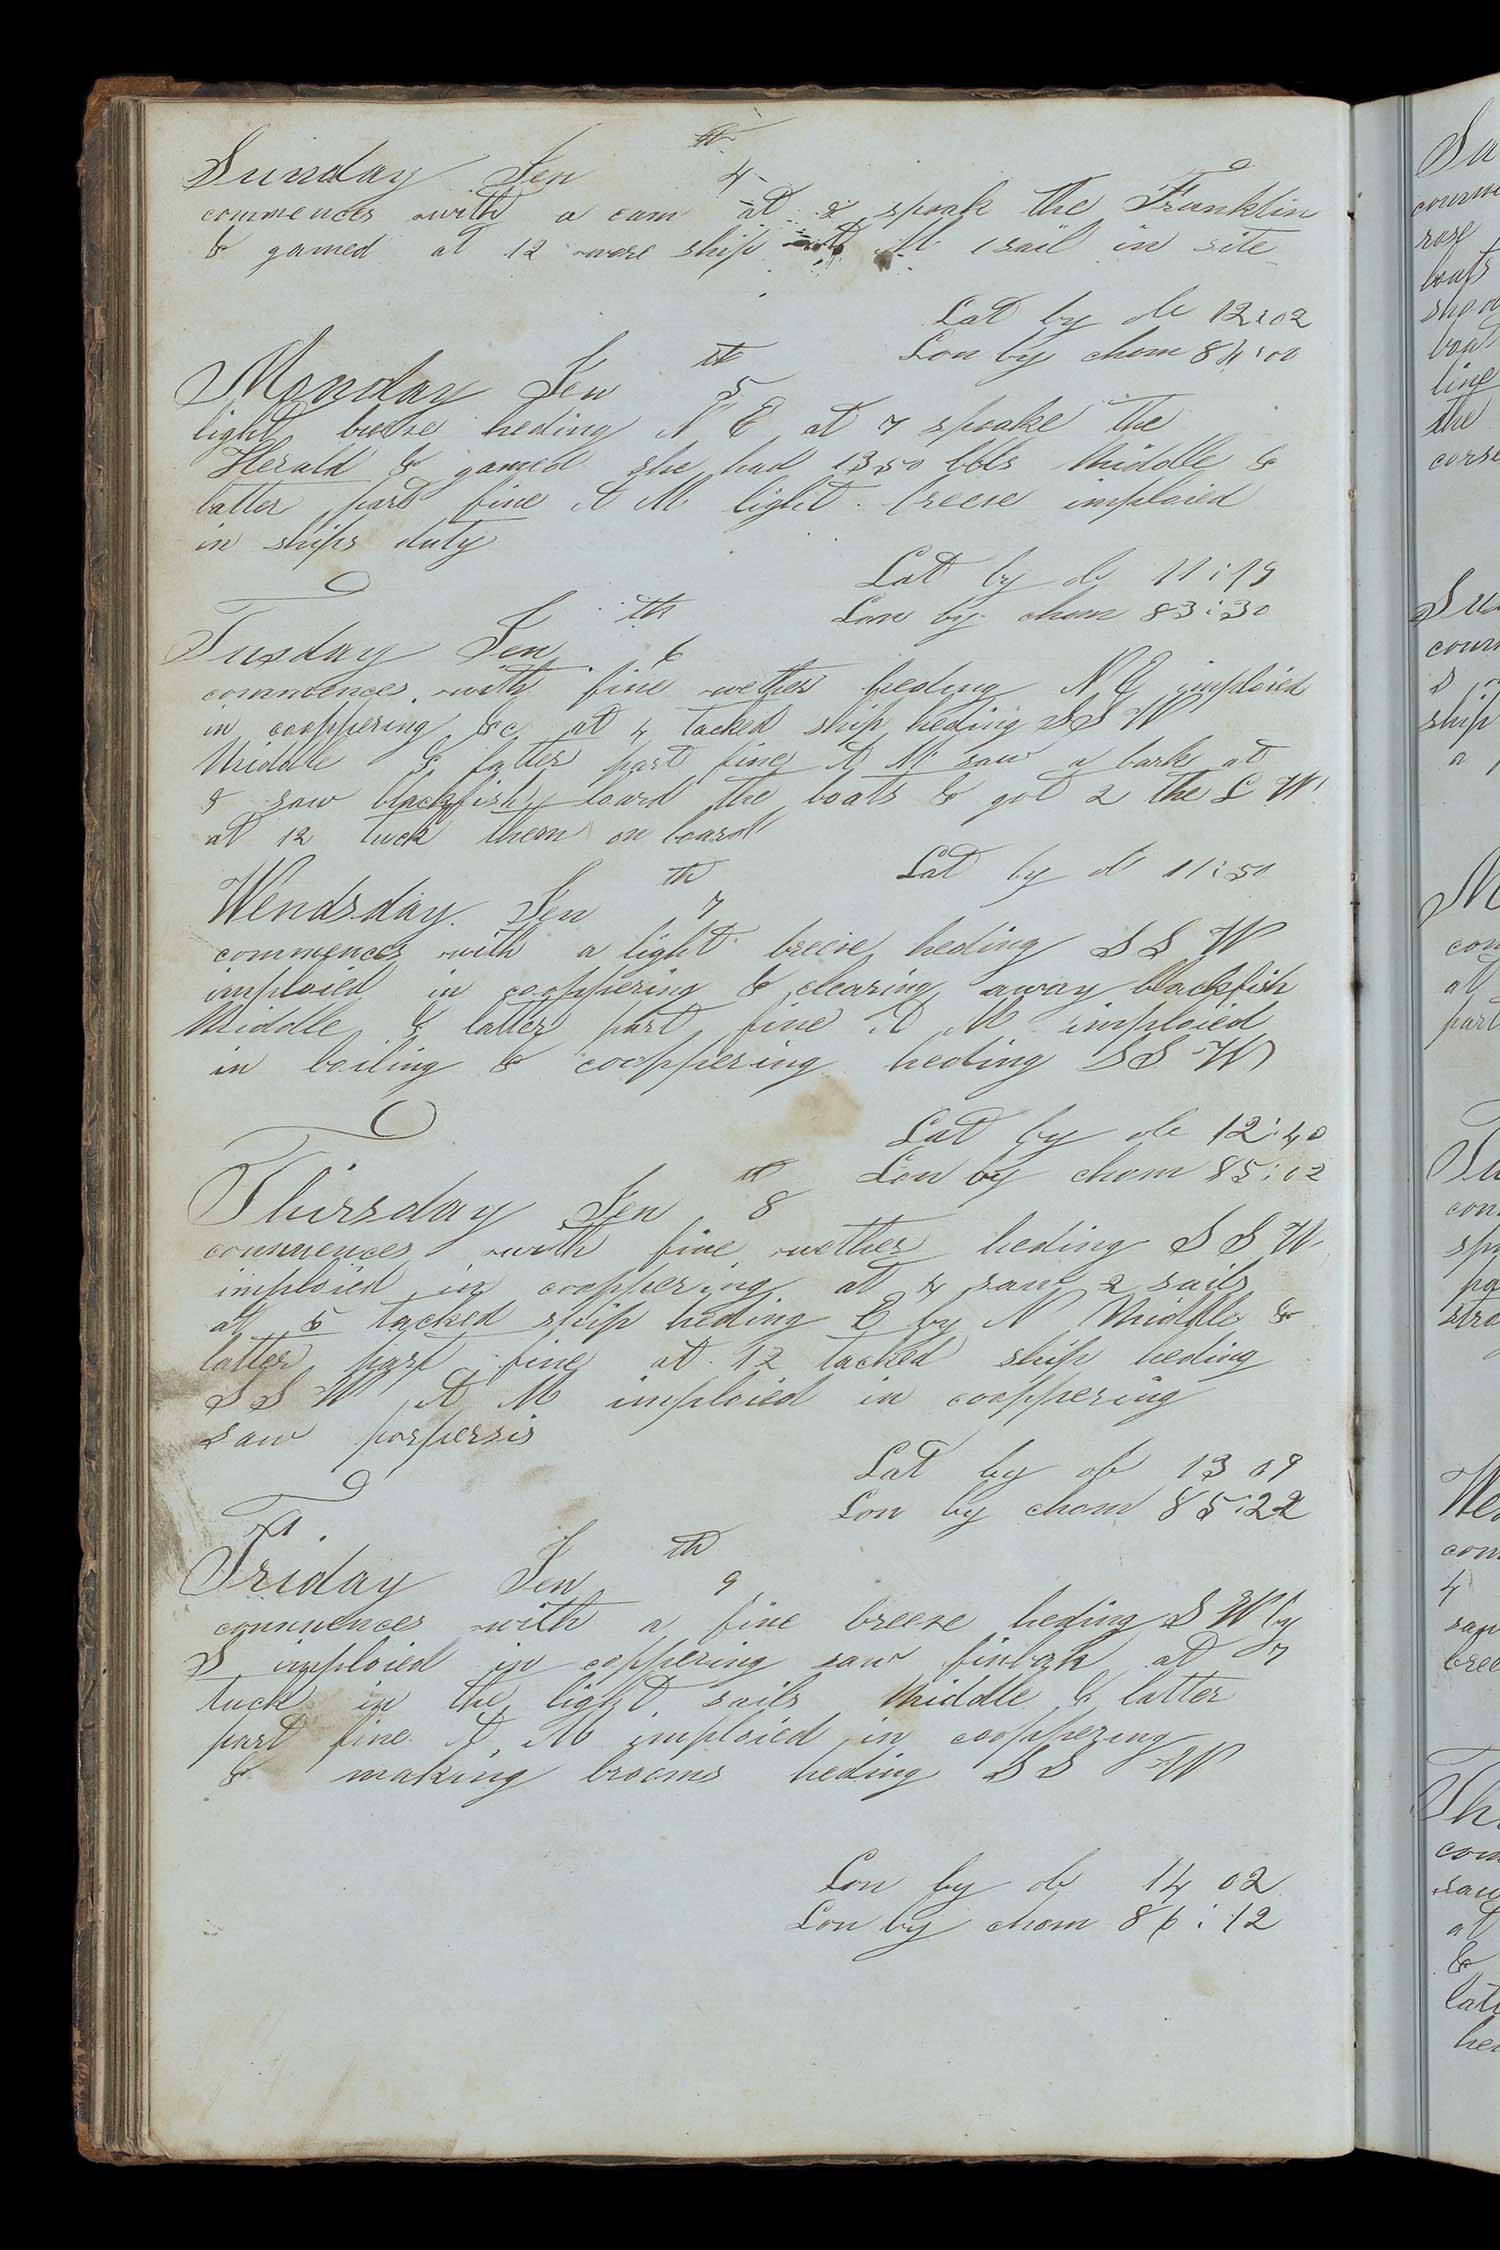 Sunday Jen 4th
commences with a cam at 2 spoak the Franklin
& gamed at 12 wore ship A M 1 sail in site
Lat by ob 12:02
Lon by chom 84:00
Monday Jen 5th
light breeze heding N E at 7 spoake the
Herald & gamed she had 1350 bbls Middle &
latter part fine A M light breeze imploied
in ships duty
Lat by ob 11:19
Lon by chom 83:30
Tusday Jen 6th
commences with fine wether heding N E imploied
in cooppering &c at 4 tacked ship heding S S W
Middle & latter part fine A M saw a bark at
8 saw blackfish loard the boats & got 2 the L W
at 12 tuck them on board
Lat by ob 11:50
Wendsday Jen 7th
commences with a light breeze heding S S W
imploied in cooppering & clearing away blackfish
Middle & latter part fine A M imploied
in boiling & cooppering heding S S W
Lat by ob 12:40
Lon by chom 85:02
Thirsday Jen 8th
commences with fine wether heding S S W
imploied in cooppering at 4 saw 2 sails
at 6 tacked ship heding E by N Middle &
latter part fine at 12 tacked ship heding
S S W A M imploied in cooppering
saw porpersis
Lat by ob 13 09
Lon by chom 85:22
Friday Jen 9th
commences with a fine breeze heding S W by
S imploied in coppering saw finbak at 7
tuck in the light sails Middle & latter
part fine A M imploied in cooppering
& making brooms heding S S W
Lon by ob 14 02
Lon by chom 86:12